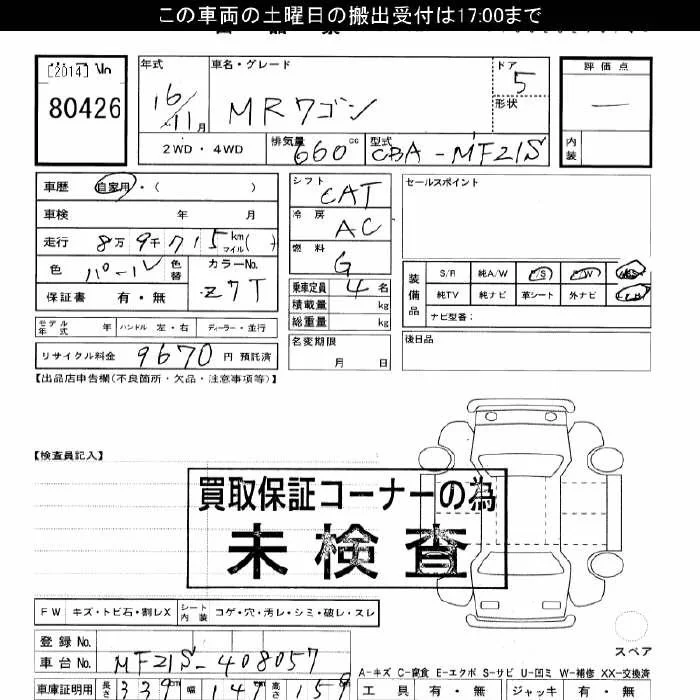 この車両の土曜日の搬出受付は17:00まで
[2014] No
80426
年式 車名・グレード ドア 評価点
16/11月 MRワゴン 5 —
形状
2WD・4WD 排気量 660 cc 型式 CBA-MF21S 内装
車歴 自家用・( )
車検 年 月
走行 8万9千715km マイル( )
色 パール 色替 カラーNo. Z7T
保証書 有・無
シフト CAT
冷房 AC
燃料 G
乗車定員 4名
積載量 kg
総重量 kg
セールスポイント
装備品 S/R 純A/W P/S P/W ABS
純TV 純ナビ 革シート 外ナビ
ナビ型番:
モデル年式 年 ハンドル 左・右 ディーラー・並行
名変期限
月 日
後日品
リサイクル料金 9670円 預託済
【出品店申告欄(不良箇所・欠品・注意事項等)】
【検査員記入】
買取保証コーナーの為
未検査
FW キズ・トビ石・割レX シート内装 コゲ・穴・汚レ・シミ・破レ・スレ
登録No.
車台No. MF21S-408057
スペア
A-キズ C-腐食 E-エクボ S-サビ U-凹ミ W-補修 XX-交換済
車庫証明用 長さ 339 cm 幅 147 高さ 159
工具 有・無 ジャッキ 有・無